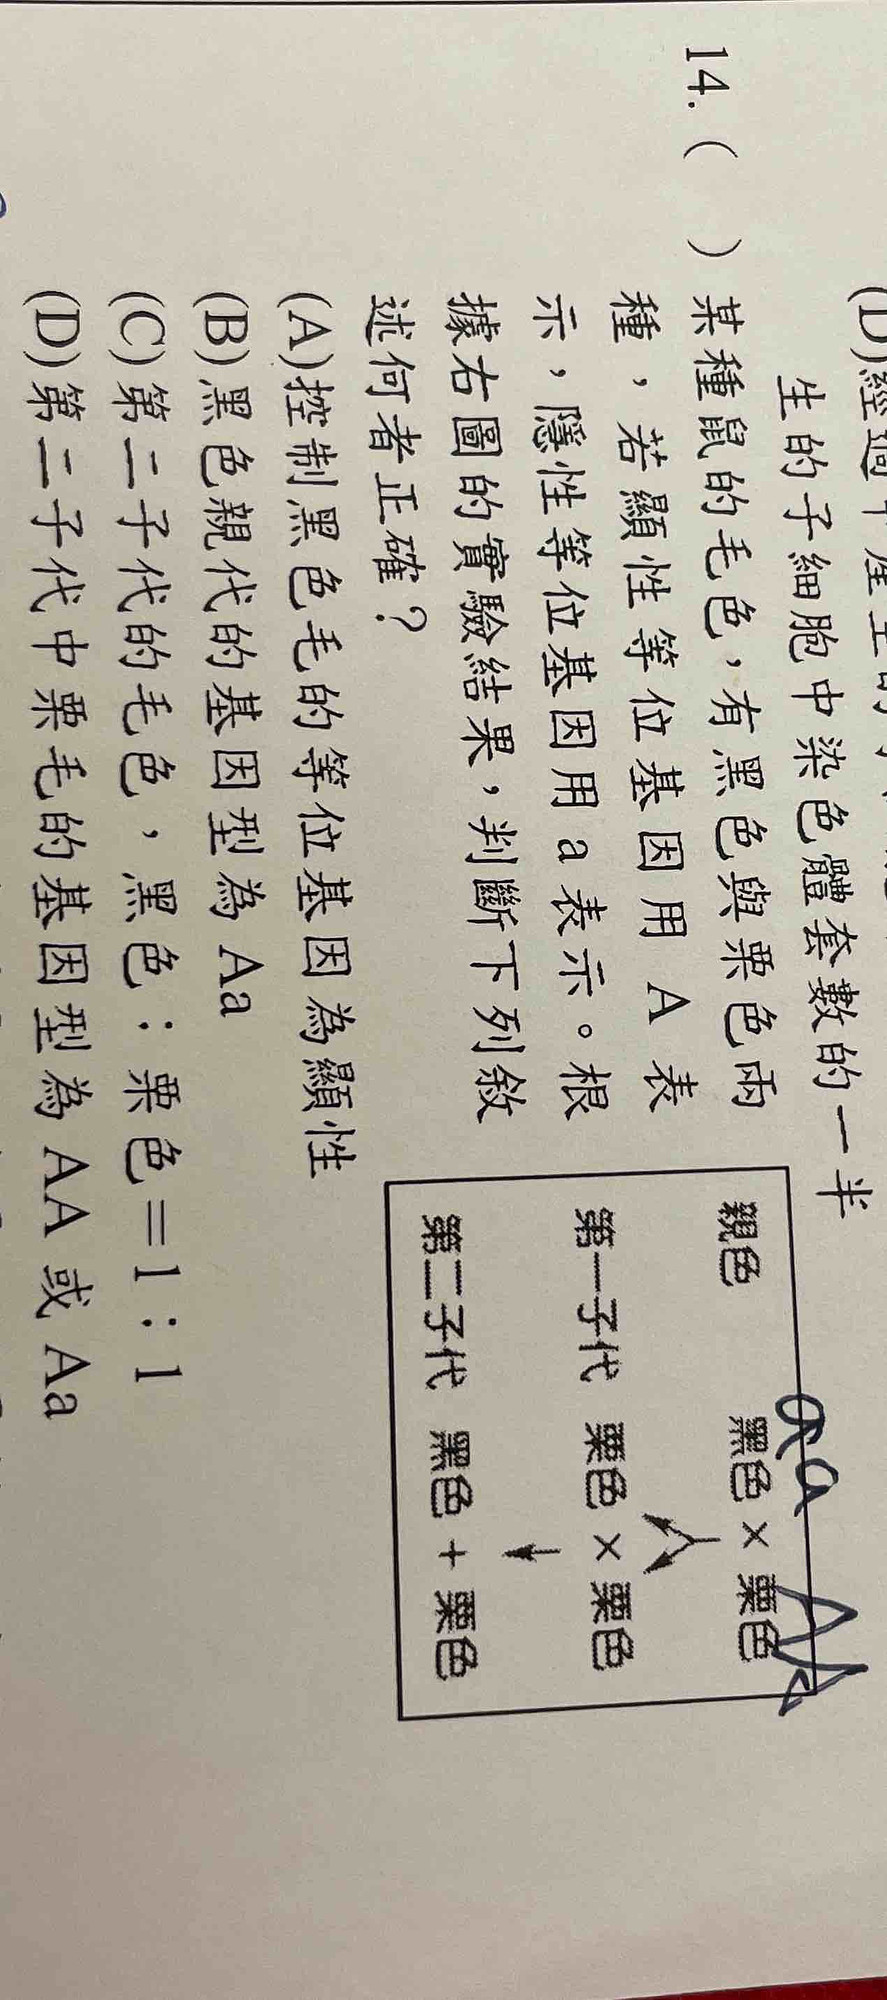 生的子細胞中染色體套數的一半
14.(　)某種鼠的毛色，有黑色與栗色兩
種，若顯性等位基因用 A 表
示，隱性等位基因用 a 表示。根
據右圖的實驗結果，判斷下列敘
述何者正確？
(A)控制黑色毛的等位基因為顯性
(B)黑色親代的基因型為 Aa
(C)第二子代的毛色，黑色：栗色＝1：1
(D)第二子代中栗毛的基因型為 AA 或 Aa
aa
親色 黑色 × 栗色
第一子代 栗色 × 栗色
第二子代 黑色 + 栗色